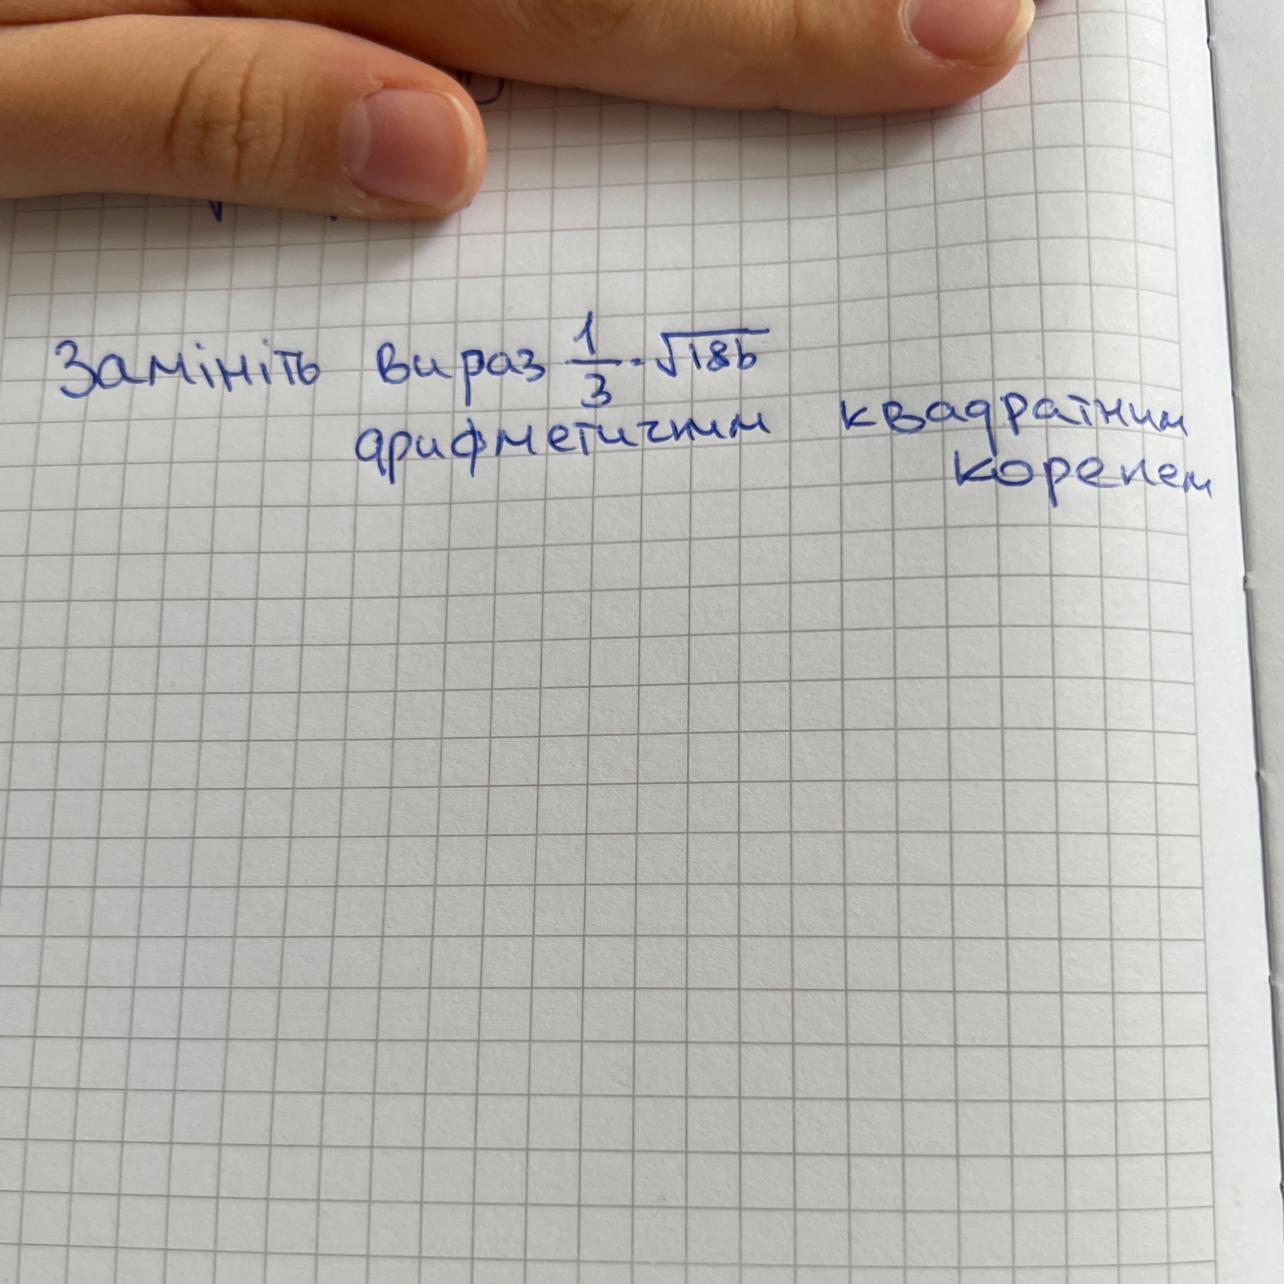 Замініть вираз 1/3 · √18b
арифметичним квадратним
коренем